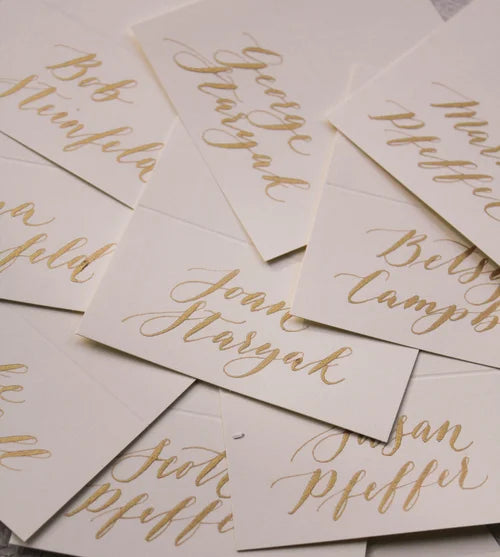 Bob
Steinfeld
George
Staryak
Pfeffe
nfeld
Joan
Staryak
Betsy
Campb
Scott
Pfeffer
Susan
Pfeffer